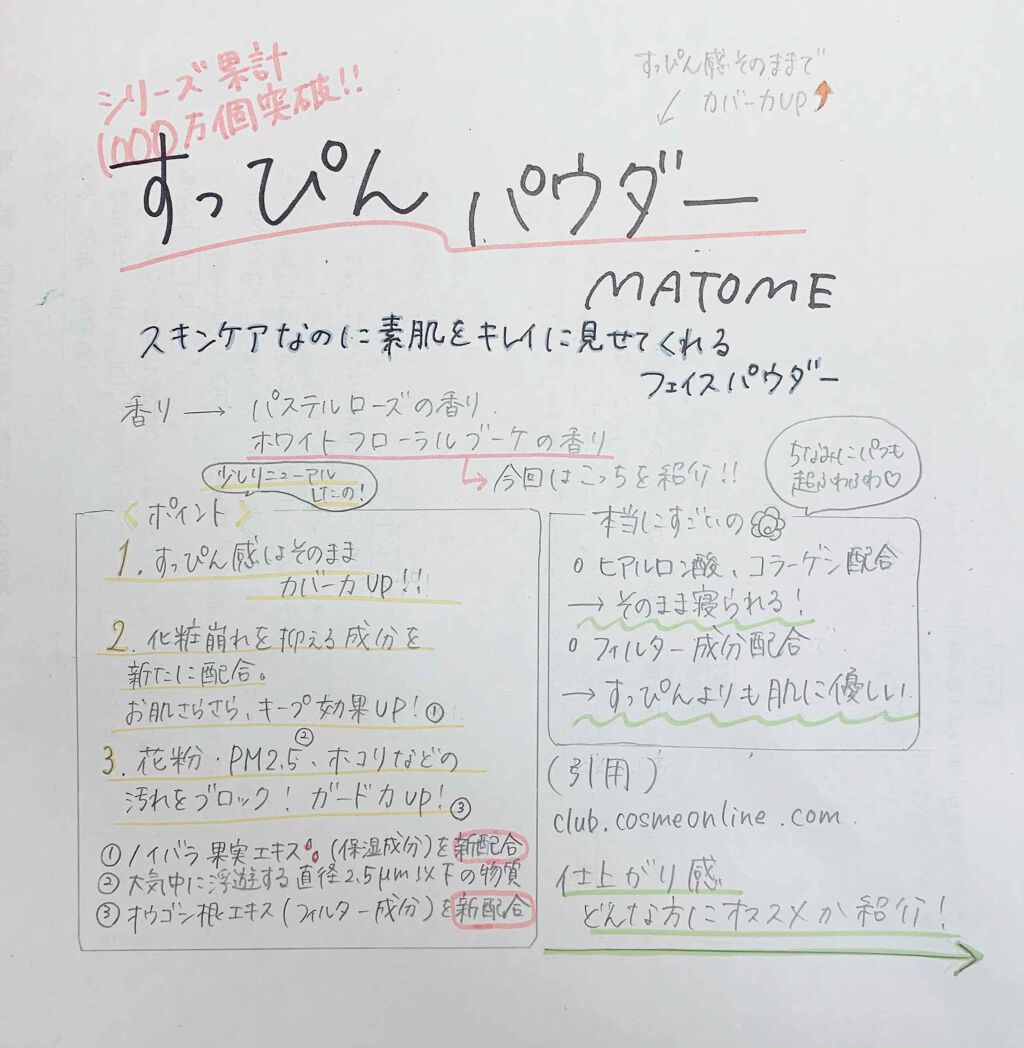 シリーズ累計
1000万個突破!!
すっぴん感そのままで
カバー力UP
すっぴんパウダー
MATOME
スキンケアなのに素肌をキレイに見せてくれる
フェイスパウダー
香り→ パステルローズの香り
ホワイトフローラルブーケの香り
今回はこっちを紹介!!
少しリニューアル
したの!
〈ポイント〉
1. すっぴん感はそのまま
カバー力UP!!
2. 化粧崩れを抑える成分を
新たに配合。
お肌さらさら、キープ効果UP!①
②
3. 花粉・PM2.5、ホコリなどの
汚れをブロック!ガード力UP!③
①ノイバラ果実エキス(保湿成分)を新配合
②大気中に浮遊する直径2.5μm以下の物質
③オウゴン根エキス(フィルター成分)を新配合
ちなみにパフも
超ふわふわ♡
本当にすごいの
○ ヒアルロン酸、コラーゲン配合
→そのまま寝られる!
○ フィルター成分配合
→すっぴんよりも肌に優しい
(引用)
club.cosmeonline.com.
仕上がり感
どんな方にオススメか紹介!